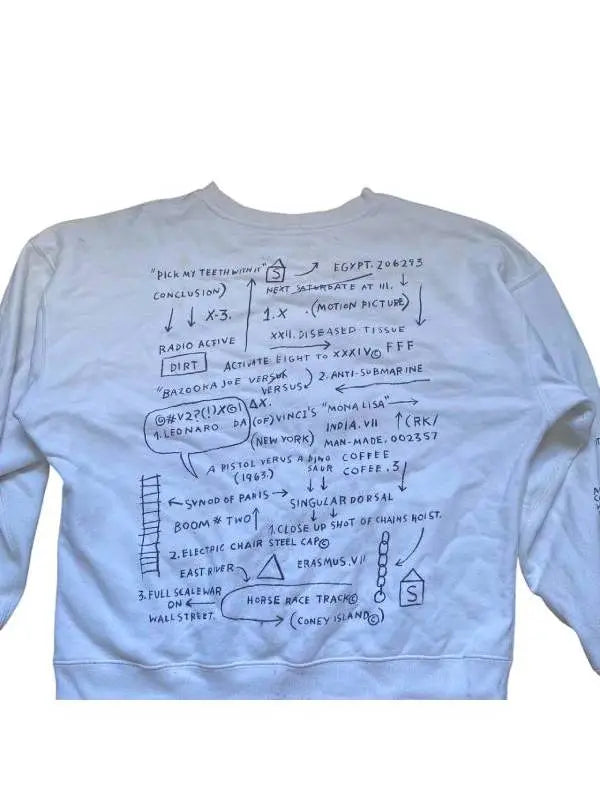 "PICK MY TEETH WITH IT" S ↗ EGYPT. 206293
CONCLUSION) NEXT SATURDATE AT III. ↓
↓ ↓ X-3. 1.X . (MOTION PICTURE)
RADIO ACTIVE XXII. DISEASED TISSUE
DIRT ACTIVATE EIGHT TO XXXIV© FFF
"BAZOOKA JOE VERSUK ) 2. ANTI-SUBMARINE
VERSUS
©#V2?(!)X©| ΔX.
1. LEONARO DA (OF) VINCI'S "MONA LISA" →
INDIA. VII ↑ (RK/
(NEW YORK) MAN-MADE. 002357
A PISTOL VERUS A DINO COFFEE
(1963.) SAUR COFEE .3
← SYNOD OF PARIS → SINGULAR DORSAL
BOOM # TWO ↑ 1. CLOSE UP SHOT OF CHAINS HOIST.
2. ELECTRIC CHAIR STEEL CAP©
EAST RIVER ERASMUS. VII
3. FULL SCALE WAR HORSE RACE TRACK© S
ON ←
WALL STREET. (CONEY ISLAND©)